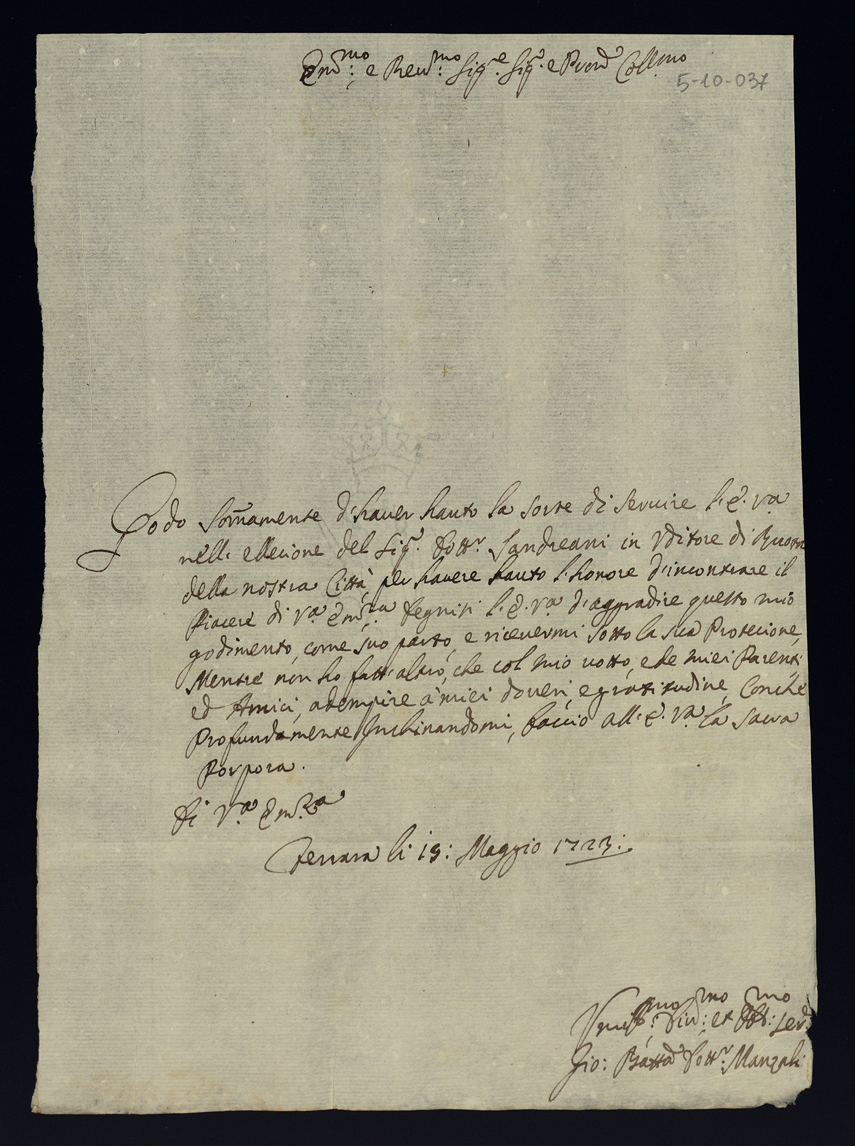 Em.mo: e Reu.mo: Sig.re Sig.r e Pron.e Coll.mo
5-10-037
Godo som̃amente d'hauer hauto la sorte di seruire l'E. V.a
nell'ellecione del Sig.r Dott.r Landreani in Vditore di Ruota
della nostra Città, per hauere hauto l'honore d'incontrare il
Piacere di V.a Em.za Degnisi l'E. V.a d'aggradire questo mio
godimento, come suo parto, e riceuermi sotto la sua Protecione,
Mentre non ho fatt'altro, che col mio uotto, e de miei Parenti
ed Amici, adempire a' miei doueri, e gratitudine, Conche
Profundamente Inchinandomi, baccio all'E. V.a la sacra
Porpora.
Di V.a Em.za
Ferrara li 19: Maggio 1723:
Vmiss.mo: Diu.mo: et Obb.mo: Seru.
Gio: Batta Dott.r Manzoli